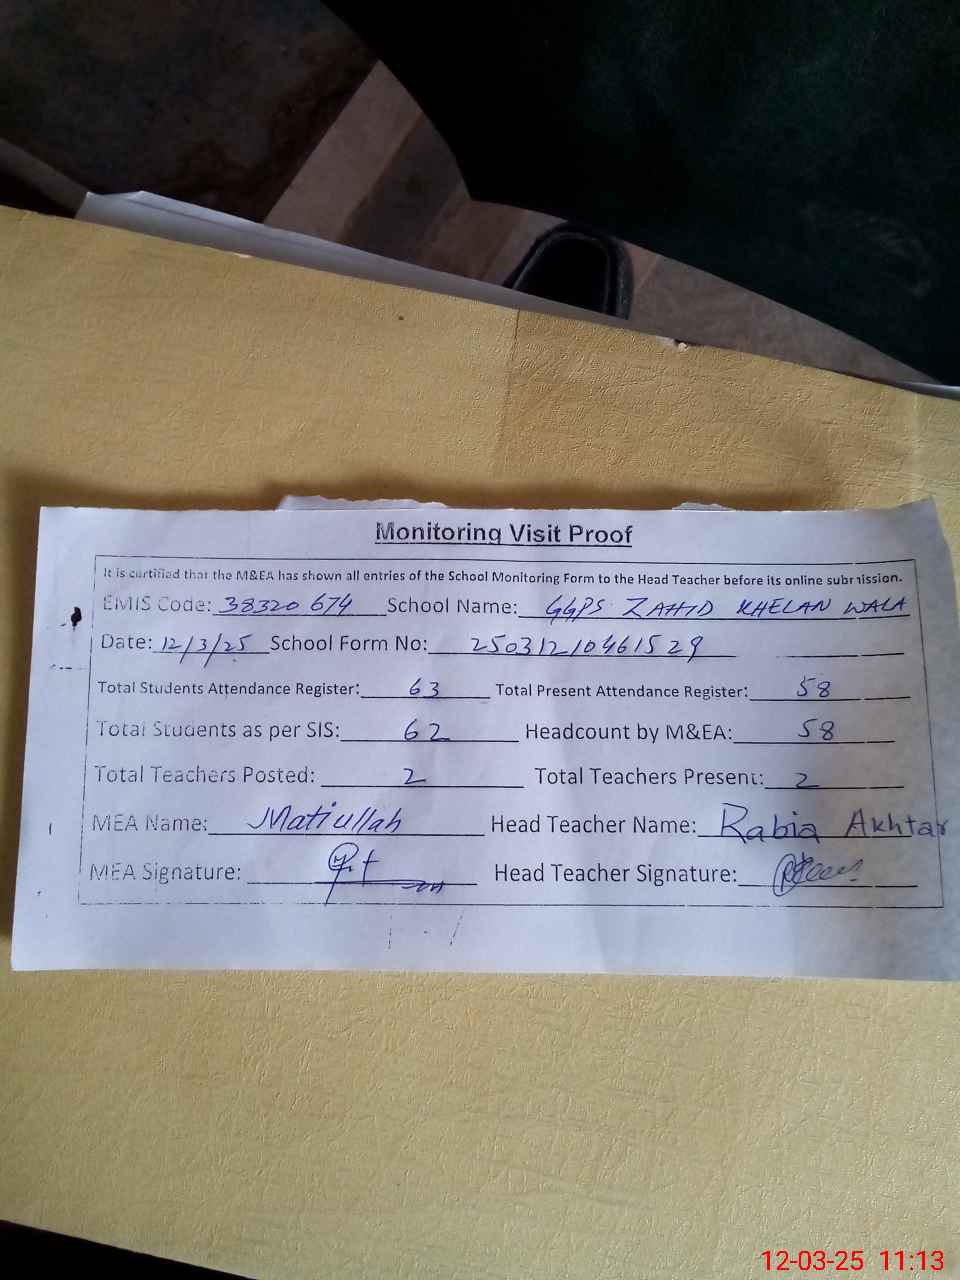 Monitoring Visit Proof
It is certified that the M&EA has shown all entries of the School Monitoring Form to the Head Teacher before its online submission.
EMIS Code: 38320674 School Name: GGPS ZAHID KHELAN WALA
Date: 12/3/25 School Form No: 25031210461529
Total Students Attendance Register: 63 Total Present Attendance Register: 58
Total Students as per SIS: 62 Headcount by M&EA: 58
Total Teachers Posted: 2 Total Teachers Present: 2
MEA Name: Matiullah Head Teacher Name: Rabia Akhtar
MEA Signature: Head Teacher Signature:
12-03-25 11:13